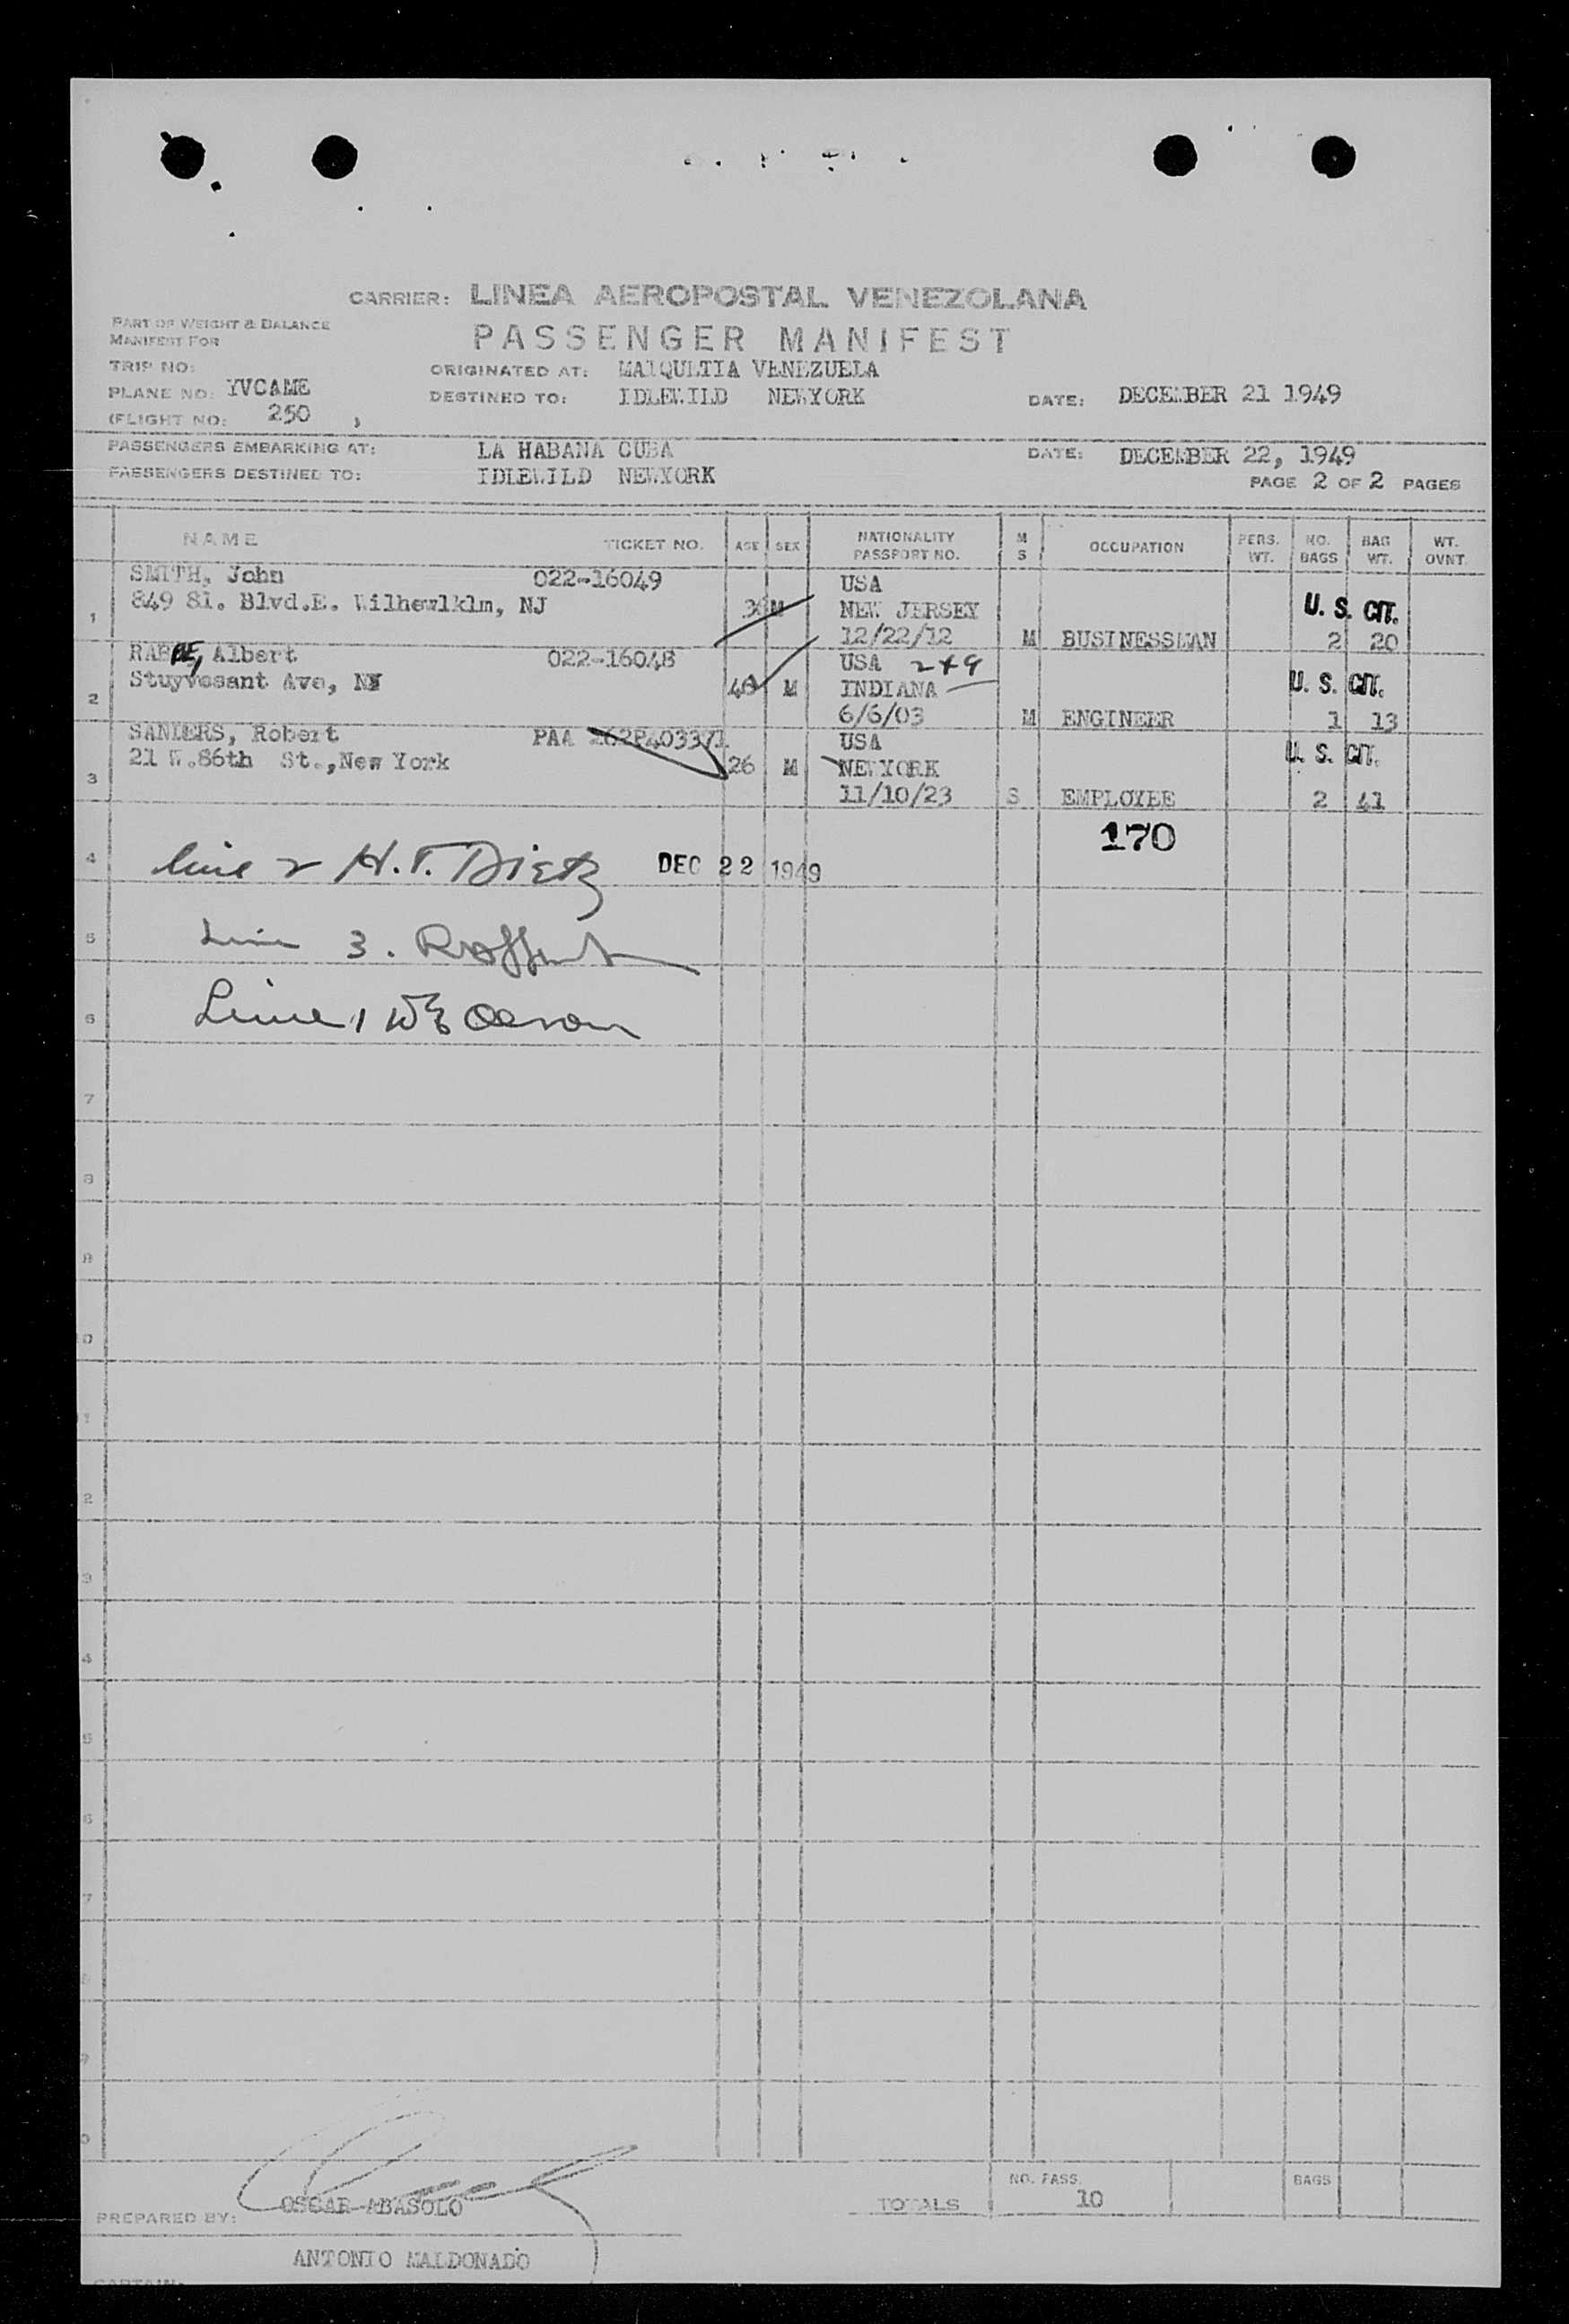 CARRIER: LINEA AEROPOSTAL VENEZOLANA
PART OF WEIGHT & BALANCE
MANIFEST FOR
PASSENGER MANIFEST
TRIP NO:
ORIGINATED AT: MAIQUETIA VENEZUELA
PLANE NO: YVCAME
DESTINED TO: IDLEWILD NEWYORK
DATE: DECEMBER 21 1949
(FLIGHT NO: 250 )
PASSENGERS EMBARKING AT: LA HABANA CUBA
DATE: DECEMBER 22, 1949
PASSENGERS DESTINED TO: IDLEWILD NEWYORK
PAGE 2 OF 2 PAGES
NAME TICKET NO. AGE SEX NATIONALITY PASSPORT NO. M S OCCUPATION PERS. WT. NO. BAGS BAG WT. WT. OVNT.
SMITH, John 022-16049 USA
849 81. Blvd.E. NJ M NEW JERSEY U. S. CIT.
1 12/22/12 M BUSINESSMAN 2 20
Albert 022-16048 USA 2+9
Stuyvesant Ave, M INDIANA U. S. CIT.
2 6/6/03 M ENGINEER 1 13
SANDERS, Robert PAA USA
21 W.86th St.,New York 26 M NEWYORK U. S. CIT.
3 11/10/23 S EMPLOYEE 2 41
170
4 line 2 H.T. Dietz DEC 22 1949
5 Line 3.
6 Line 1
7
8
9
0
1
2
3
4
5
6
7
8
9
0
NO. PASS. BAGS
TOTALS 10
PREPARED BY: OSCAR ABASOLO
ANTONIO MALDONADO
CAPTAIN: